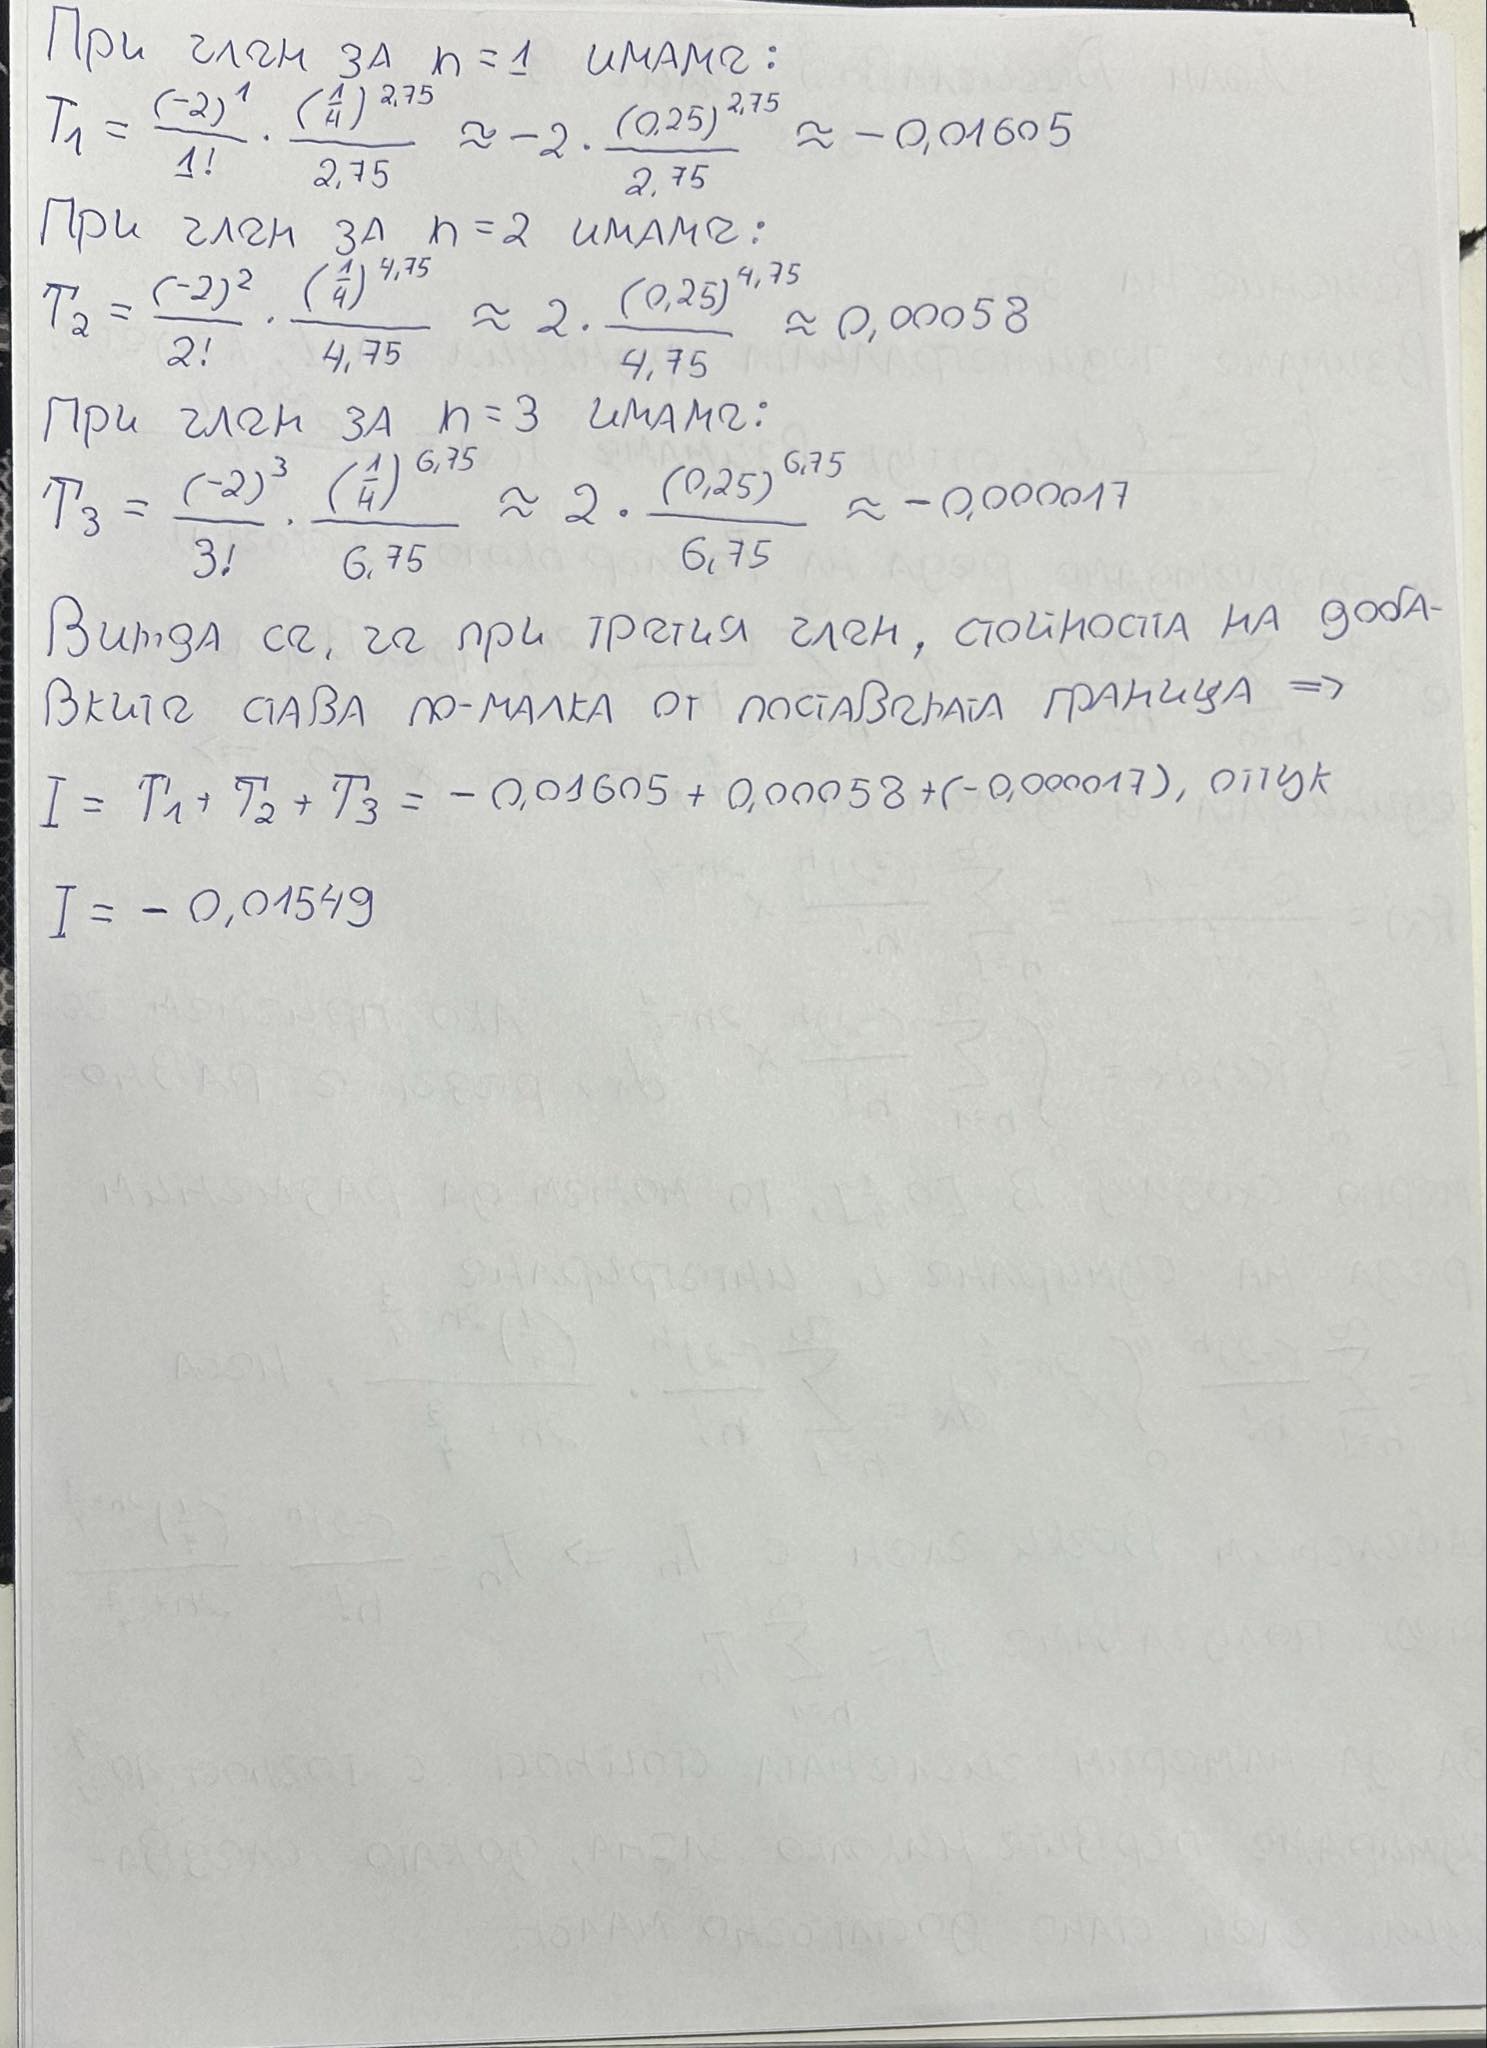 При член за n = 1 имаме:
T₁ = (-2)¹/1! · (1/4)^2,75/2,75 ≈ -2 · (0,25)^2,75/2,75 ≈ -0,01605
При член за n = 2 имаме:
T₂ = (-2)²/2! · (1/4)^4,75/4,75 ≈ 2 · (0,25)^4,75/4,75 ≈ 0,00058
При член за n = 3 имаме:
T₃ = (-2)³/3! · (1/4)^6,75/6,75 ≈ 2 · (0,25)^6,75/6,75 ≈ -0,000017
Вижда се, че при третия член, стойността на доба-
вките става по-малка от поставената граница =>
I = T₁ + T₂ + T₃ = -0,01605 + 0,00058 + (-0,000017), оттук
I = - 0,01549